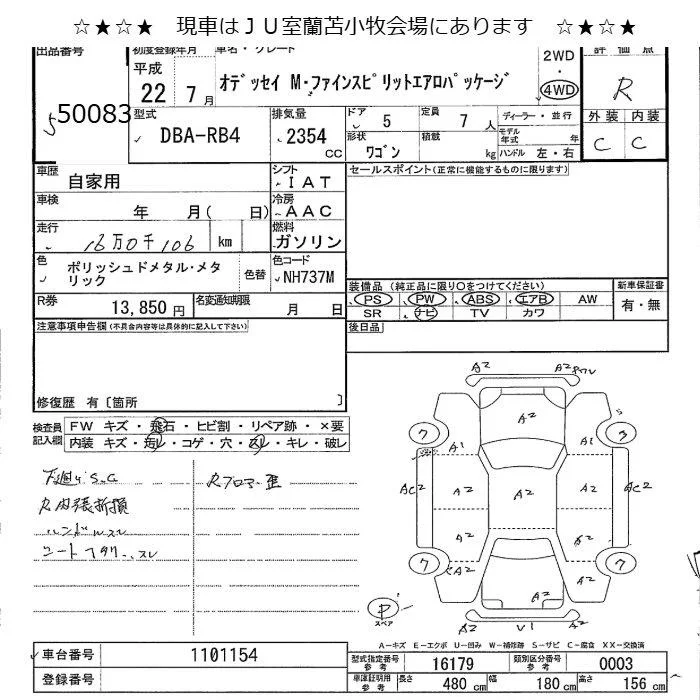 ☆★☆★ 現車はＪＵ室蘭苫小牧会場にあります ☆★☆★
出品番号 初度登録年月 車名・グレード 2WD 評価点
50083
平成
22 7月
オデッセイ M・ファインスピリットエアロパッケージ
4WD
R
型式 排気量 ドア 5 定員 7人 ディーラー・並行 外装 内装
DBA-RB4 2354 cc 形状 ワゴン 積載 kg モデル年式 年 ハンドル 左・右 C C
車歴 自家用 シフト IAT セールスポイント(正常に機能するものに限ります)
車検 年 月( 日) 冷房 AAC
走行 16万0千106 km 燃料 ガソリン
色 ポリッシュドメタル・メタリック 色替 色コード NH737M
装備品 (純正品に限り○をつけてください) 新車保証書
PS PW ABS エアB AW 有・無
SR ナビ TV カワ
R券 13,850円 名変通知期限 月 日
後日品
注意事項申告欄(不具合内容等は具体的に記入して下さい)
修復歴 有〔箇所 〕
検査員記入欄 FW キズ・飛石・ヒビ割・リペア跡・×要
内装 キズ・汚レ・コゲ・穴・スレ・キレ・破レ
下廻りS.C
R内張折損
ハンドルスレ
シートヘタリ、スレ
Rフロアー歪
A2 A2
A2
ワ A1 A1 ワ
AC2 A2 A2 A2 AC2
A2 A2
ワ A2 A2 A2 ワ
A2 V1 A2
P スペア
A-キズ E-エクボ U-凹み W-補修跡 S-サビ C-腐食 XX-交換済
車台番号 1101154
登録番号
型式指定番号 参考 16179 類別区分番号 参考 0003
車庫証明用 参考 長さ 480cm 幅 180cm 高さ 156cm